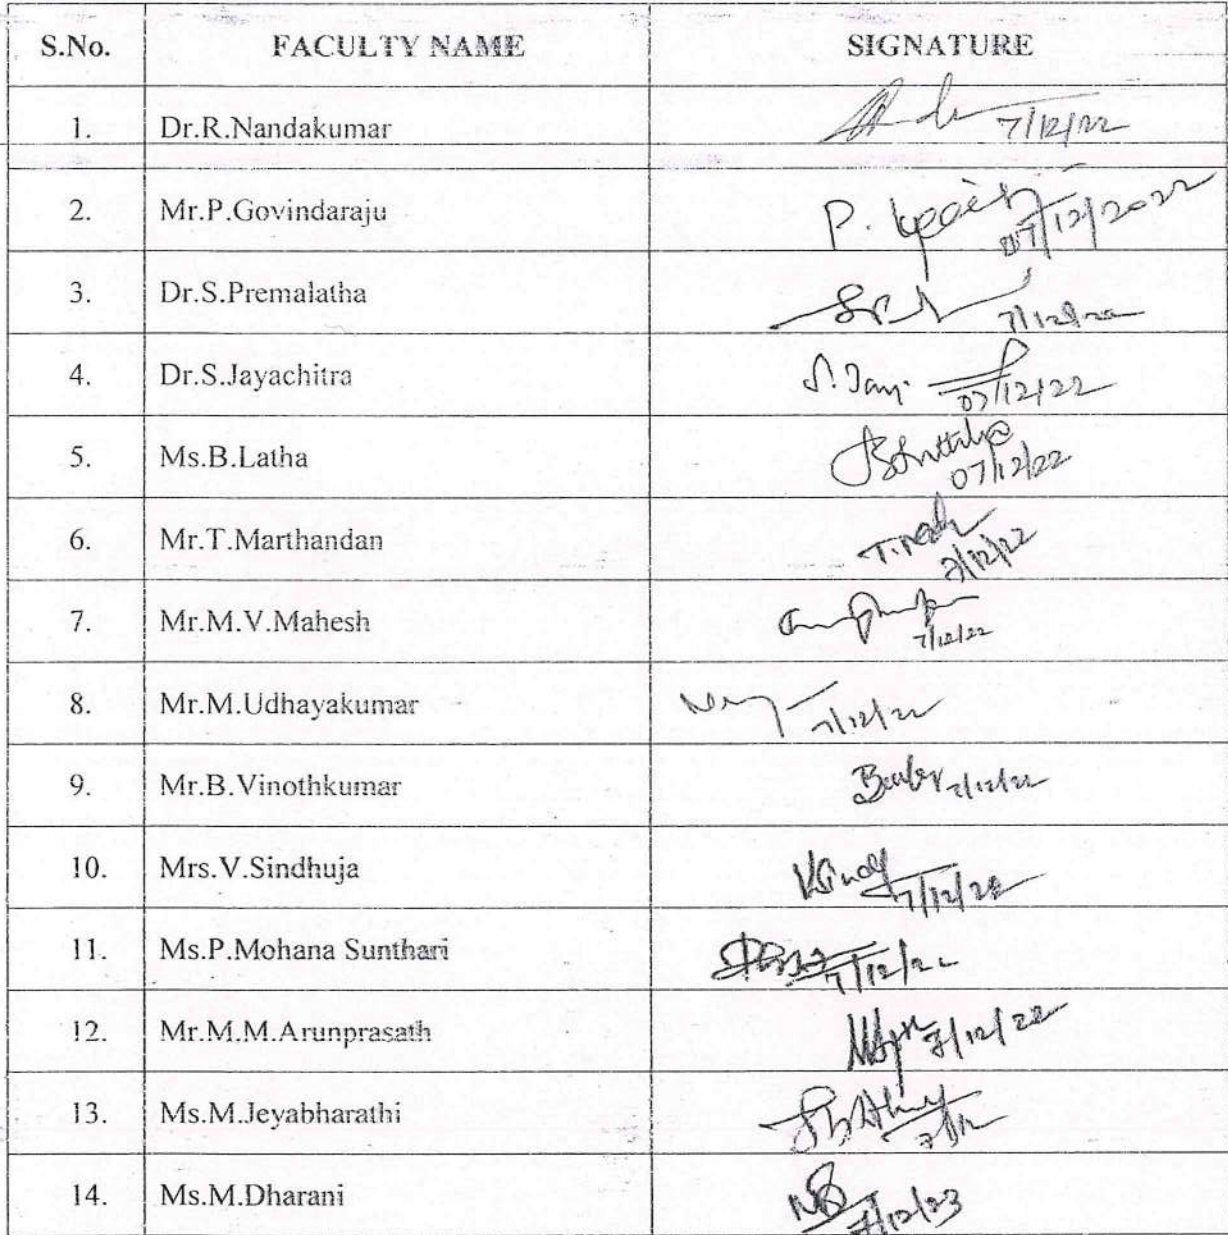 S.No. FACULTY NAME SIGNATURE
1. Dr.R.Nandakumar 7/12/22
2. Mr.P.Govindaraju P. 07/12/2022
3. Dr.S.Premalatha 7/12/22
4. Dr.S.Jayachitra 07/12/22
5. Ms.B.Latha 07/12/22
6. Mr.T.Marthandan 7/12/22
7. Mr.M.V.Mahesh 7/12/22
8. Mr.M.Udhayakumar 7/12/22
9. Mr.B.Vinothkumar 7/12/22
10. Mrs.V.Sindhuja 7/12/22
11. Ms.P.Mohana Sunthari 7/12/22
12. Mr.M.M.Arunprasath 7/12/22
13. Ms.M.Jeyabharathi 7/12
14. Ms.M.Dharani 7/12/23